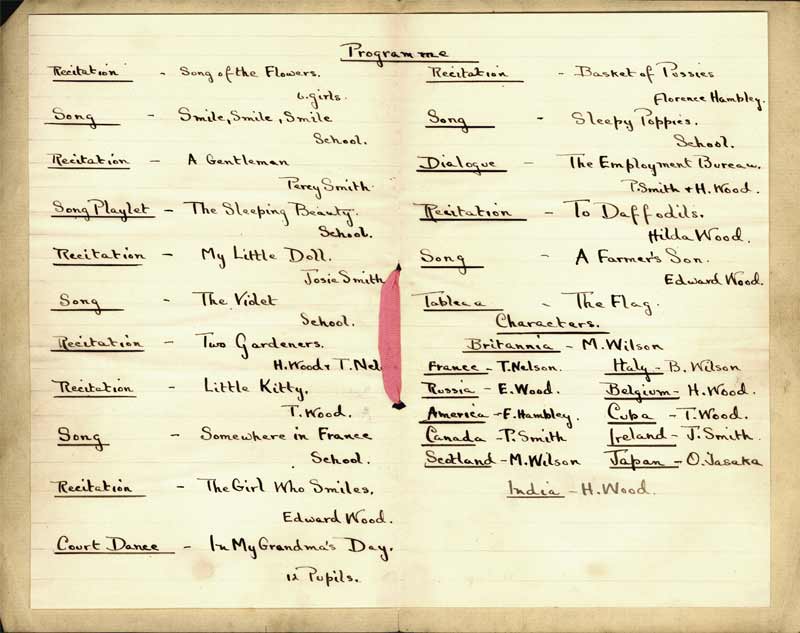 Programme
Recitation - Song of the Flowers.
6. girls.
Song - Smile, Smile, Smile
School.
Recitation - A Gentleman
Percy Smith
Song Playlet - The Sleeping Beauty.
School.
Recitation - My Little Doll.
Josie Smith
Song - The Violet
School.
Recitation - Two Gardeners.
H. Wood & T. Nel
Recitation - Little Kitty.
T. Wood.
Song - Somewhere in France
School.
Recitation - The Girl Who Smiles.
Edward Wood.
Court Dance - In My Grandma's Day.
12 Pupils.
Recitation - Basket of Pussies
Florence Hambley.
Song - Sleepy Poppies.
School.
Dialogue - The Employment Bureau.
P. Smith & H. Wood.
Recitation - To Daffodils.
Hilda Wood.
Song - A Farmer's Son.
Edward Wood.
Tableaa - The Flag.
Characters.
Britannia - M. Wilson
France - T. Nelson. Italy - B. Wilson
Russia - E. Wood. Belgium - H. Wood.
America - F. Hambley. Cuba - T. Wood.
Canada - P. Smith Ireland - J. Smith.
Scotland - M. Wilson Japan - O. Tasaka
India - H. Wood.